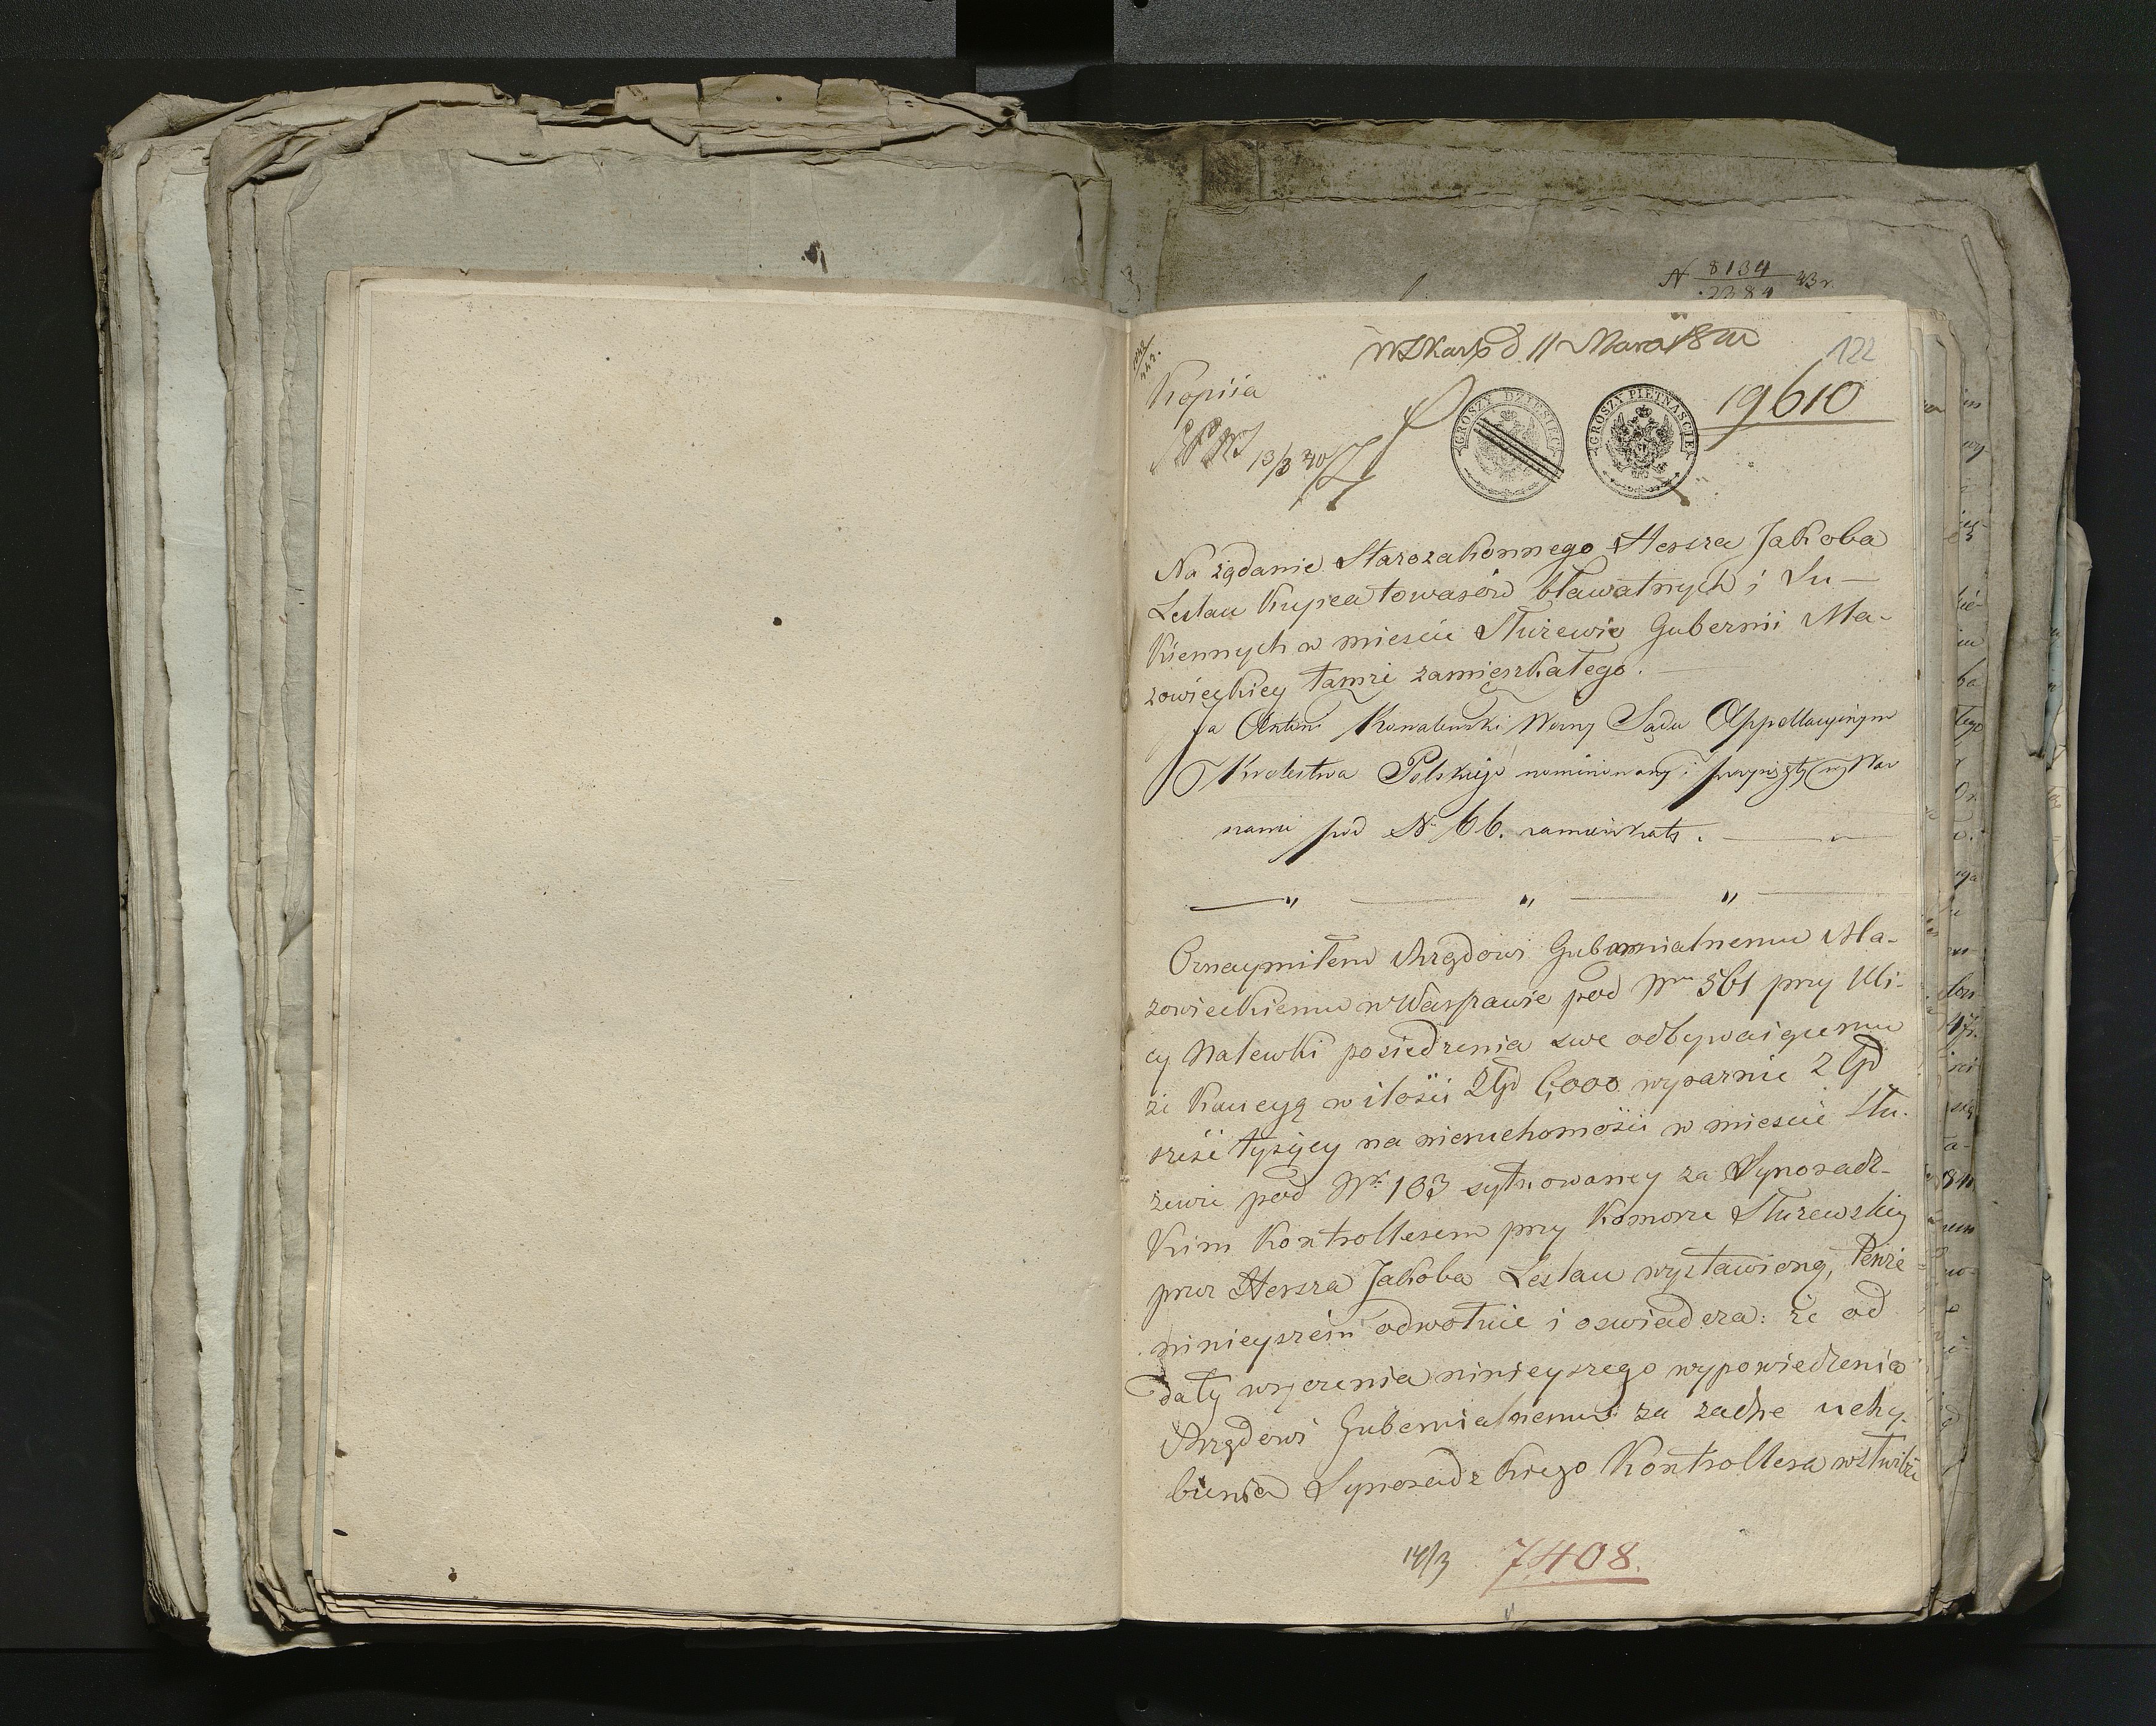 N 8134
2384 43 r.
d. 11 Marca 18
122
Kopiia
19610
GROSZY DZIESIĘĆ
GROSZY PIĘTNAŚCIE
13/3 40
Na żądanie Starozakonnego Hersza Jakoba
Leslau Kupca towarów bławatnych i Su-
kiennych w mieście Służewie Gubernii Ma-
zowieckiey tamże zamieszkałego.
Ja Antoni Kowalewski Woźny Sądu Appellacyjnego
Królestwa Polskiego nominowany i przysięgły w War
szawie pod N. 66. zamieszkały.
Oznaymiłem Rządowi Gubernialnemu Ma-
zowieckiemu w Warszawie pod Nrm 561 przy Uli-
cy Nalewki posiedzenia swe odbywaiącemu
że Kaucyą w ilości Złp 6,000 wyraźnie Złp
sześć tysięcy na nieruchomości w mieście Słu-
żewie pod Nr. 103 sytuowaney za Synoradz-
kim Kontrollerem przy Komorze Służewskiey
przez Hersza Jakoba Leslau wystawioną, tenże
ninieyszem odwołuie i oswiadcza: że od
daty wręczenia ninieyszego wypowiedzenia
Rządowi Gubernialnemu za żadne uchy-
bienia Synoradzkiego Kontrollera w służbie
14/3 7408.